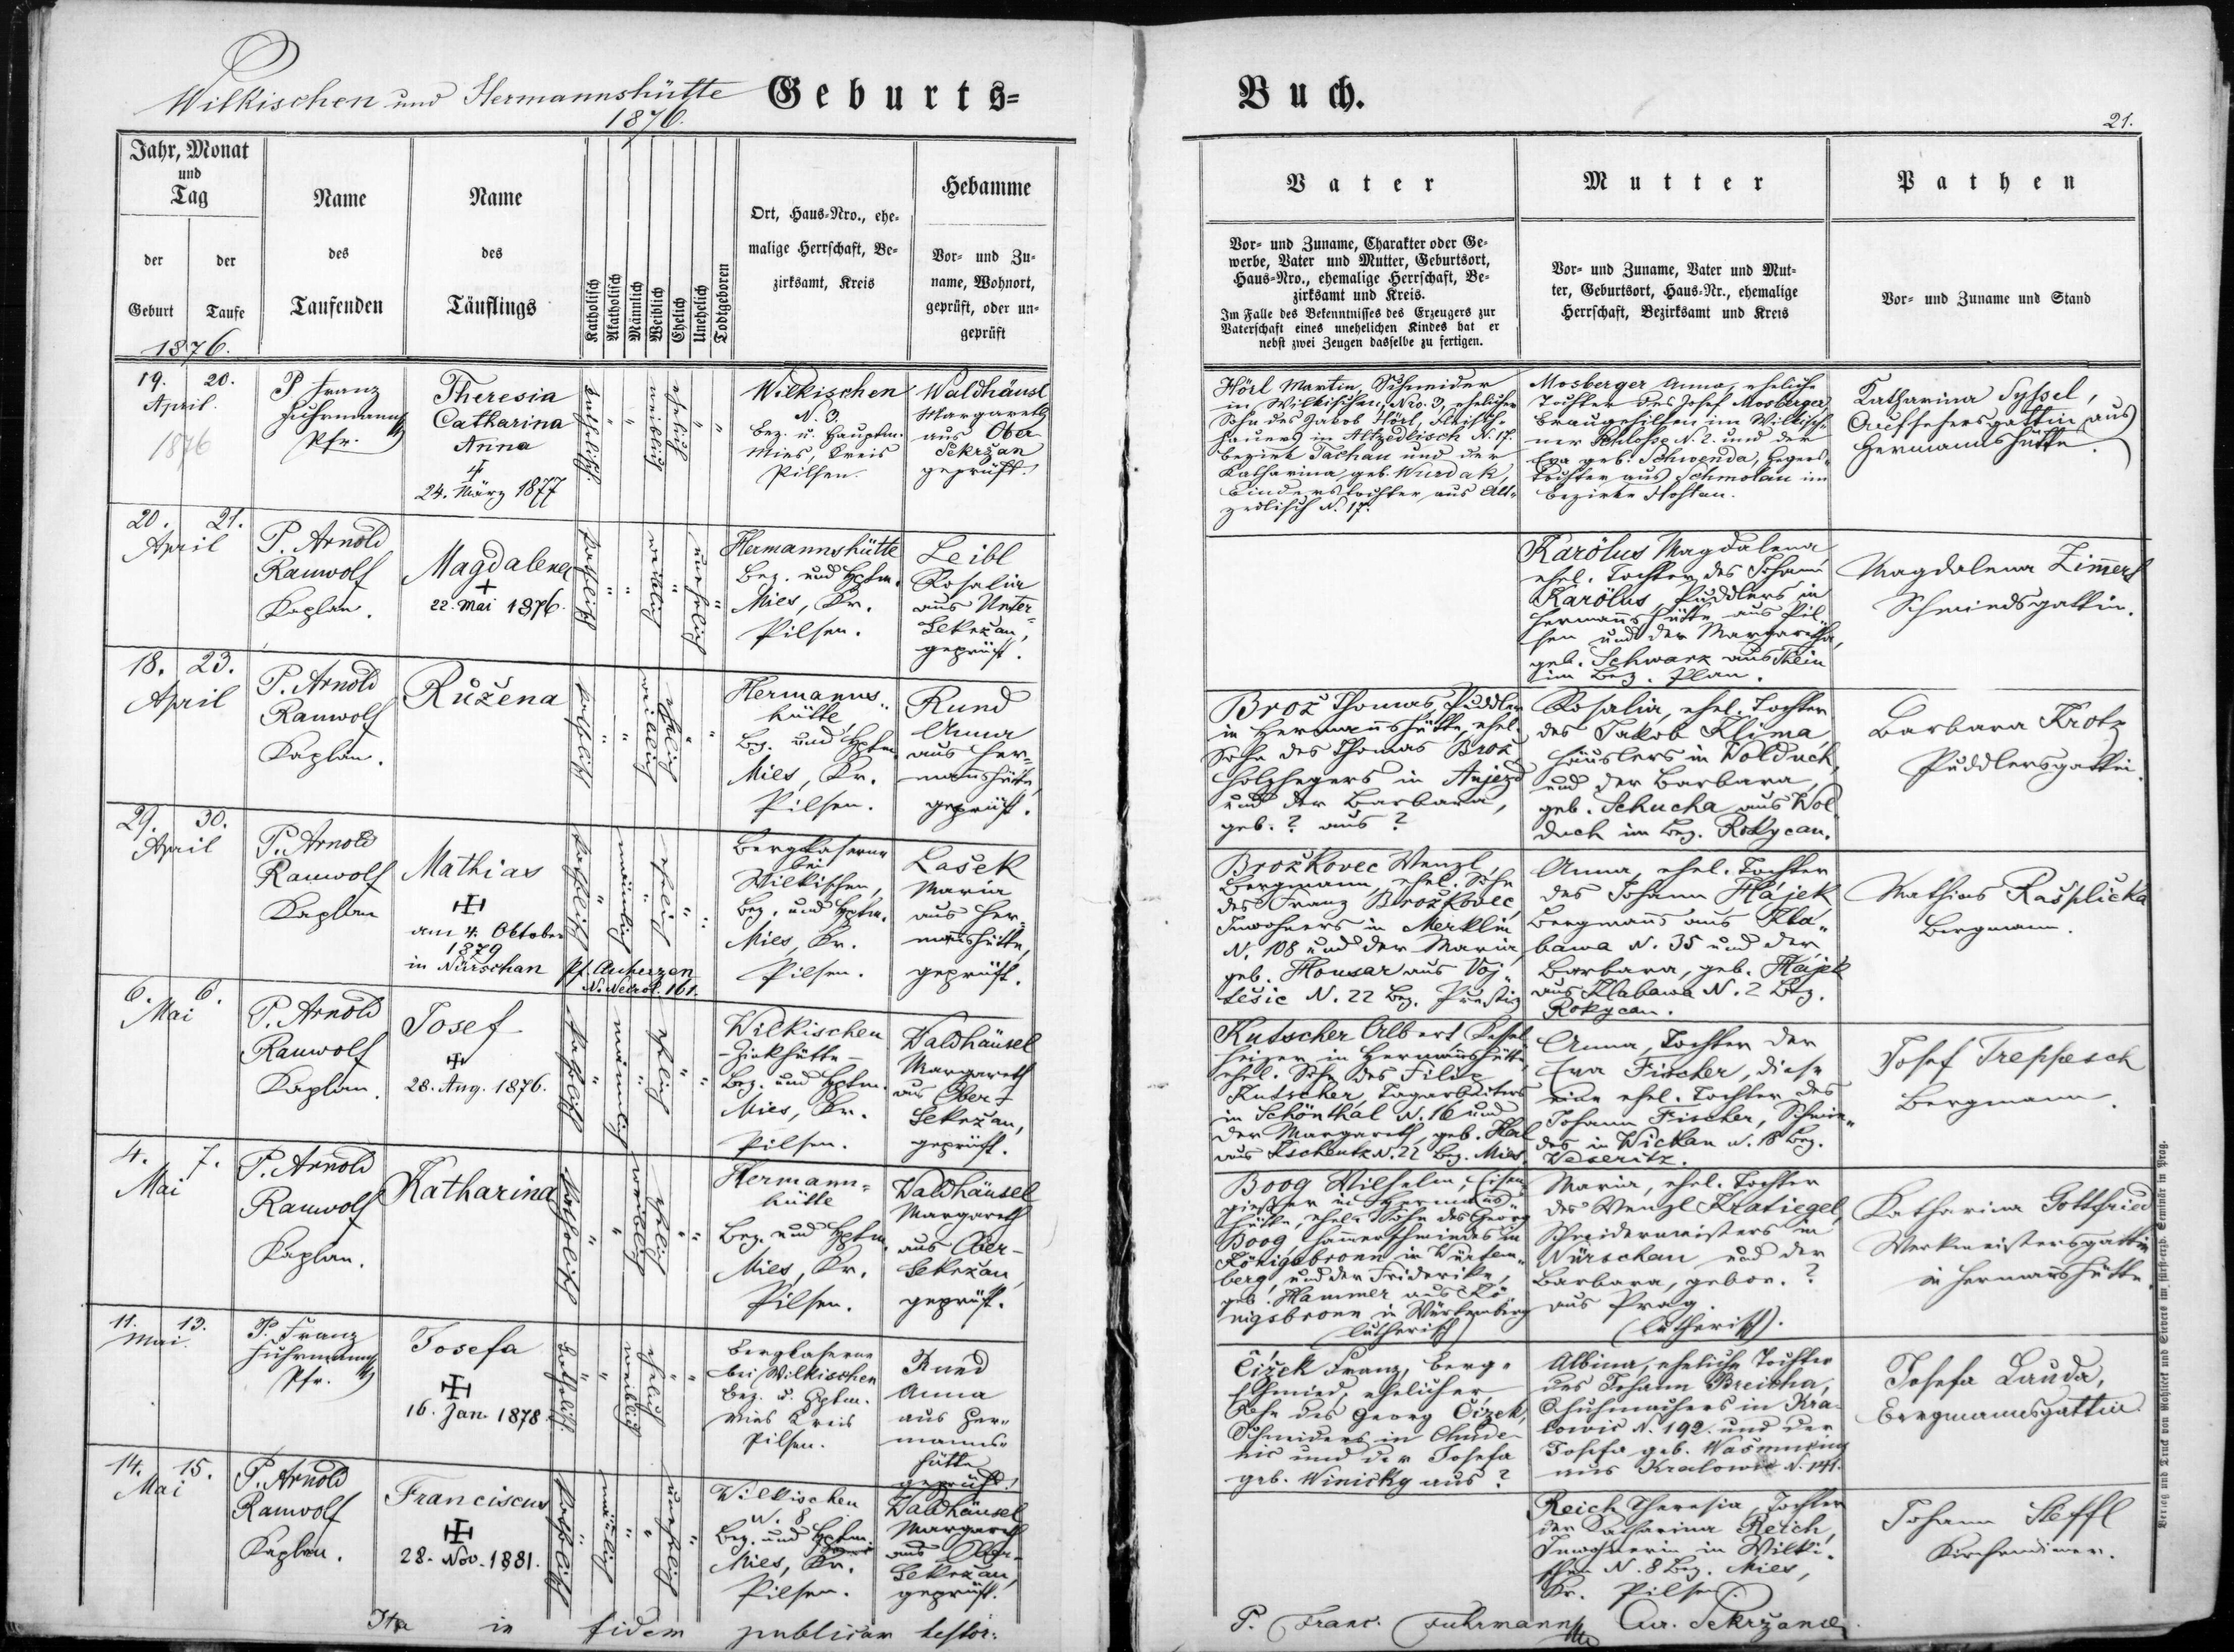 Wilkischen und Hermannshütte Geburts=
1876.
Buch.
21.
Jahr, Monat
und
Tag
der
Geburt
der
Taufe
Name
des
Taufenden
Name
des
Täuflings
Katholisch
Akatholisch
Männlich
Weiblich
Ehelich
Unehelich
Todtgeboren
Ort, Haus=Nro., ehe=
malige Herrschaft, Be=
zirksamt, Kreis
Hebamme
Vor= und Zu=
name, Wohnort,
geprüft, oder un=
geprüft
Vater
Vor= und Zuname, Charakter oder Ge=
werbe, Vater und Mutter, Geburtsort,
Haus=Nro., ehemalige Herrschaft, Be=
zirksamt und Kreis.
Im Falle des Bekenntnisses des Erzeugers zur
Vaterschaft eines unehelichen Kindes hat er
nebst zwei Zeugen dasselbe zu fertigen.
Mutter
Vor= und Zuname, Vater und Mut=
ter, Geburtsort, Haus=Nr., ehemalige
Herrschaft, Bezirksamt und Kreis
Pathen
Vor= und Zuname und Stand
1876.
19. 20.
April.
1876
P Franz
Fuhrmann
Pfr.
Theresia
Catharina
Anna
24. März 1877
katholisch
weiblich
ehelich
Wilkischen
N. 3
Bez. u. Hauptm.
Mies, Kreis
Pilsen.
Waldhäusl
Margareth
aus Ober
Sekržan
geprüft.
Hörl Martin, Schneider
in Wilkischen Nro. 3, ehelicher
Sohn des Jakob Hörl, Fleisch=
hauers in Altzedlisch N. 17.
Bezirk Tachau und der
Katharina geb. Wurdak,
Binderstochter aus Alt=
zedlisch N. 17.
Mosberger Anna, eheliche
Tochter des Josef Mosberger
Braugehilfen im Wilkisch=
ner Schlosse N. 2. und der
Eva geb. Schwenda, Hegers=
tochter aus Schmolau im
Bezirke Hostau.
Katharina Syssel,
Aufsehersgattin aus
Hermannshütte.
20. 21.
April
P. Arnold
Rauwolf
Kaplan.
Magdalena
+
22. Mai 1876.
katholisch
weiblich
unehelich
Hermannshütte
Bez. und Hptm.
Mies, Kr.
Pilsen.
Leibl
Rosalia
aus Unter=
Sekržan,
geprüft.
Karölus Magdalena
ehel. Tochter des Johann
Karölus, Puddlers in
Hermannshütte aus Pil=
sen und der Margaretha,
geb. Schwarz aus Thein
im Bez. Plan.
Magdalena Zimmerl
Schmiedsgattin.
18. 23.
April
P. Arnold
Rauwolf
Kaplan.
Růžena
katholisch
weiblich
ehelich
Hermanns=
hütte,
Bez. und Hptm.
Mies, Kr.
Pilsen.
Rund
Anna
aus Her=
mannshütte,
geprüft.
Brož Thomas, Puddler
in Hermannshütte, ehel.
Sohn des Thomas Brož
Holzhegers in Aujezd
und der Barbara,
geb. ? aus ?
Rosalia, ehel. Tochter
des Jakob Klima
Häuslers in Wolduch,
und der Barbara,
geb. Schucha aus Wol
duch im Bez. Rokycan.
Barbara Krotz
Puddlersgattin.
29. 30.
April
P. Arnold
Rauwolf
Kaplan
Mathias
am 4. Oktober
1879
in Nürschan Pf. Auherzen
N. Nekrol. 161.
katholisch
männlich
ehelich
Bergkaserne
bei
Wilkischen,
Bez. und Hptm.
Mies, Kr.
Pilsen.
Lasek
Maria
aus Her=
mannshütte,
geprüft.
Brožkovec Wenzl,
Bergmann, ehel. Sohn
des Franz Brožkovec,
Inwohners in Merklin
N. 108 und der Maria,
geb. Housar aus Voj
tešic N. 22 Bez. Prestiz
Anna, ehel. Tochter
des Johann Hájek
Bergmanns aus Kla=
bawa N. 35 und der
Barbara, geb. Hájek
aus Klabawa N. 2 Bez.
Rokycan.
Mathias Rašplicka
Bergmann.
6. 6.
Mai
P. Arnold
Rauwolf
Kaplan.
Josef
28. Aug. 1876.
katholisch
männlich
ehelich
Wilkischen
- Zinkhütte -
Bez. und Hptm.
Mies, Kr.
Pilsen.
Waldhäusel
Margareth
aus Ober=
Sekržan,
geprüft.
Kutscher Albert, Kessel
heizer in Hermannshütte,
ehel. Sohn des Filip
Kutscher, Tagarbeiters
in Schönthal N. 16 und
der Margareth, geb. Hal
aus Kscheutz N. 22 Bez. Mies.
Anna, Tochter der
Eva Fischer, diese
eine ehel. Tochter des
Johann Fischer, Schmie=
des in Wickau N. 18 Bez.
Weseritz.
Josef Treppesch
Bergmann.
4. 7.
Mai
P. Arnold
Rauwolf
Kaplan.
Katharina
katholisch
weiblich
ehelich
Hermann=
hütte
Bez. und Hptm.
Mies, Kr.
Pilsen.
Waldhäusel
Margareth
aus Ober=
Sekržan,
geprüft.
Boog Wilhelm, Eisen=
gießer in Hermanns=
hütte, ehel. Sohn des Georg
Boog Hammerschmiedes in
Königsbronn in Würtem=
berg, und der Friderike,
geb. Hammer aus Kö
nigsbronn in Würtemberg
(lutherisch)
Maria, ehel. Tochter
des Wenzl Kratiegel,
Schneidermeisters in
Nürschan und der
Barbara, gebor. ?
aus Prag.
(lutherisch).
Katharina Gottfried
Werkmeistersgattin
in Hermannshütte.
11. 13.
Mai.
P. Franz
Fuhrmann
Pfr.
Josefa
16. Jan. 1878
katholisch
weiblich
ehelich
Bergkaserne
bei Wilkischen
Bez. u. Hptm.
Mies Kreis
Pilsen.
Rund
Anna
aus Her=
manns=
hütte
geprüft.
Čížek Franz, Berg=
schmied, ehelicher
Sohn des Georg Čížek,
Schneiders in Chude=
nic und der Josefa
geb. Winicky aus ?
Albina, eheliche Tochter
des Johann Breicha,
Schuhmachers in Kra=
lowic N. 192. und der
Josefa geb.
aus Kralowic N. 141.
Josefa Lauda,
Bergmannsgattin
14. 15.
Mai
P. Arnold
Rauwolf
Kaplan.
Franciscus
28. Nov. 1881.
katholisch
männlich
unehelich
Wilkischen
N. 8
Bez. und Hptm.
Mies, Kr.
Pilsen.
Waldhäusel
Margareth
aus Ober=
Sekržan,
geprüft.
Reich Theresia, Tochter
der Katharina Reich,
Inwohnerin in Wilki=
schen N. 8 Bez. Mies,
Kr. Pilsen.
Johann Steffl
Kirchendiener.
Ita in fidem publicam testor:
P. Franc. Fuhrmann Cur. Sekržanae
Verlag und Druck von Rohlicek und Sievers im fürst-erzb. Seminär in Prag.